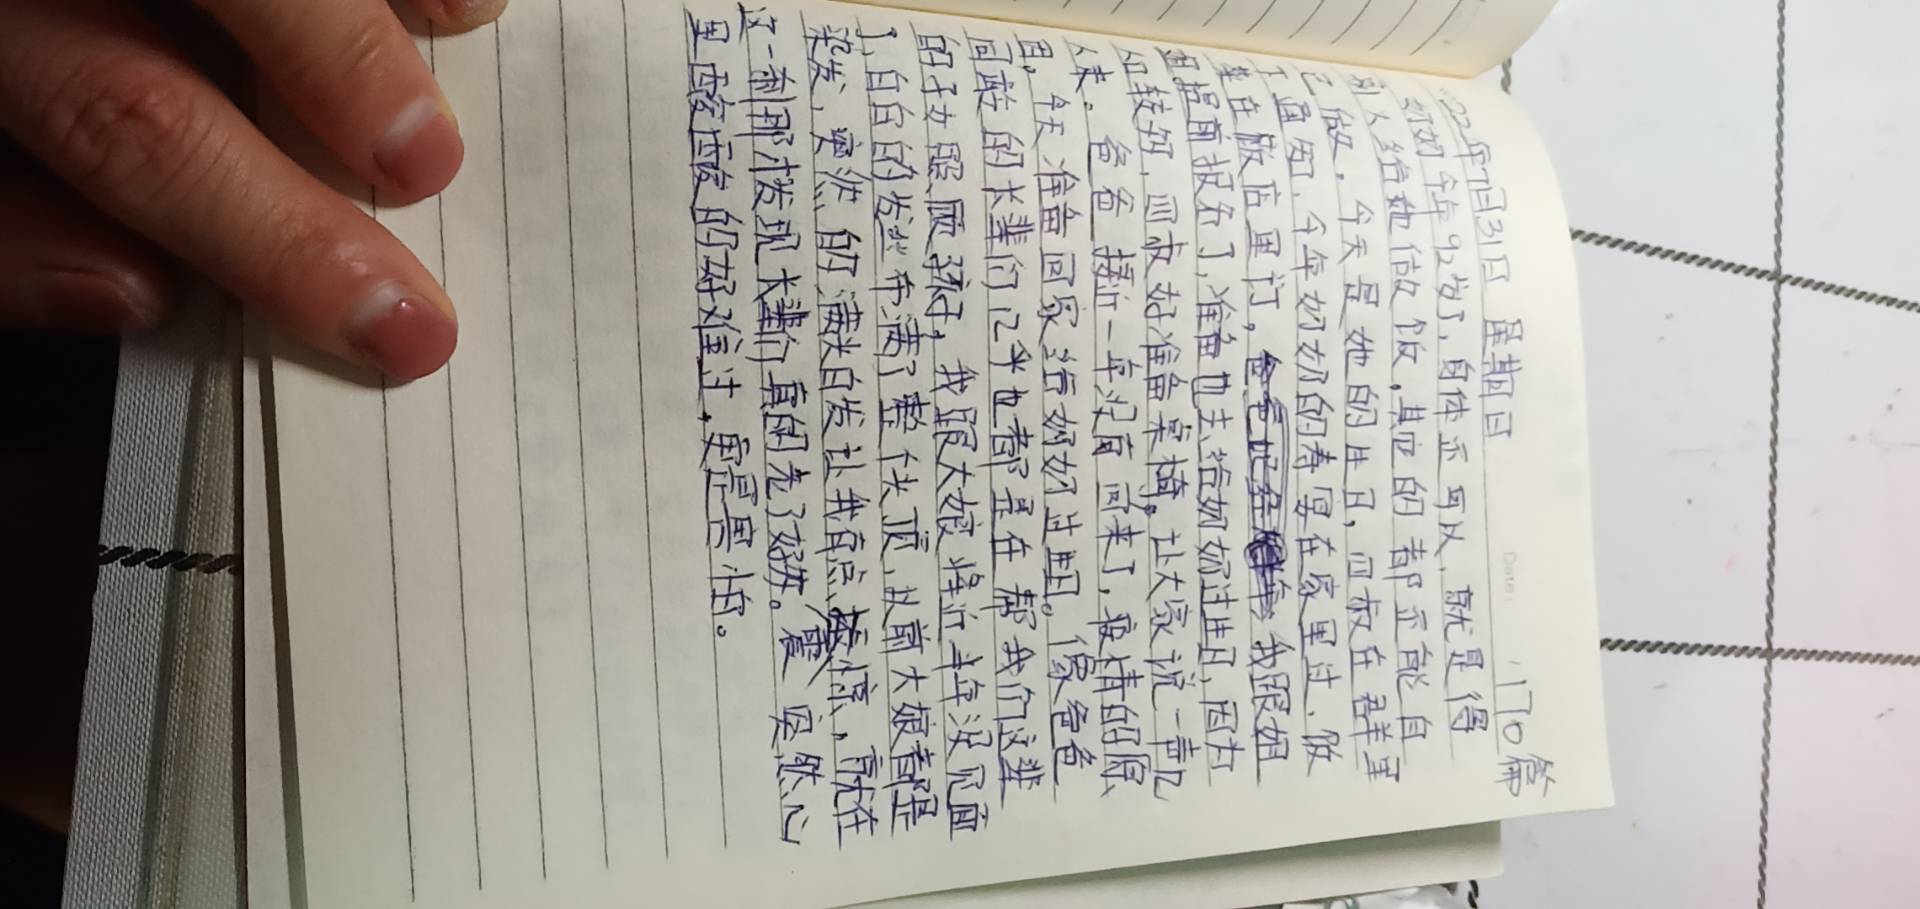 22年7月31日 星期日
Date:
170篇
奶奶今年92岁了,身体还可以,就是得
别人给她做饭,其它的都不能自
己做,今天是她的生日,四叔在群里
了通知,今年奶奶的寿宴在家里过,做
菜在饭店里订,我跟姐
姐提前报名了,准备也去给奶奶过生日,因为
人较多,四叔好准备桌椅。让大家说一声几
人来,爸爸接近一年没有回来了,疫情的原
因,今天准备回家给奶奶过生日。像爸爸
同龄的长辈们几乎也都是在帮我们这辈
的子女照顾孩子,我跟大娘将近半年没见面
了,白白的发丝布满了整个头顶,从前大娘都是
染发,突然的满头白发让我有点震惊,就在
这一刹那才发现大辈们真的老了好多。突然心
里酸酸的好难过,更是害怕。